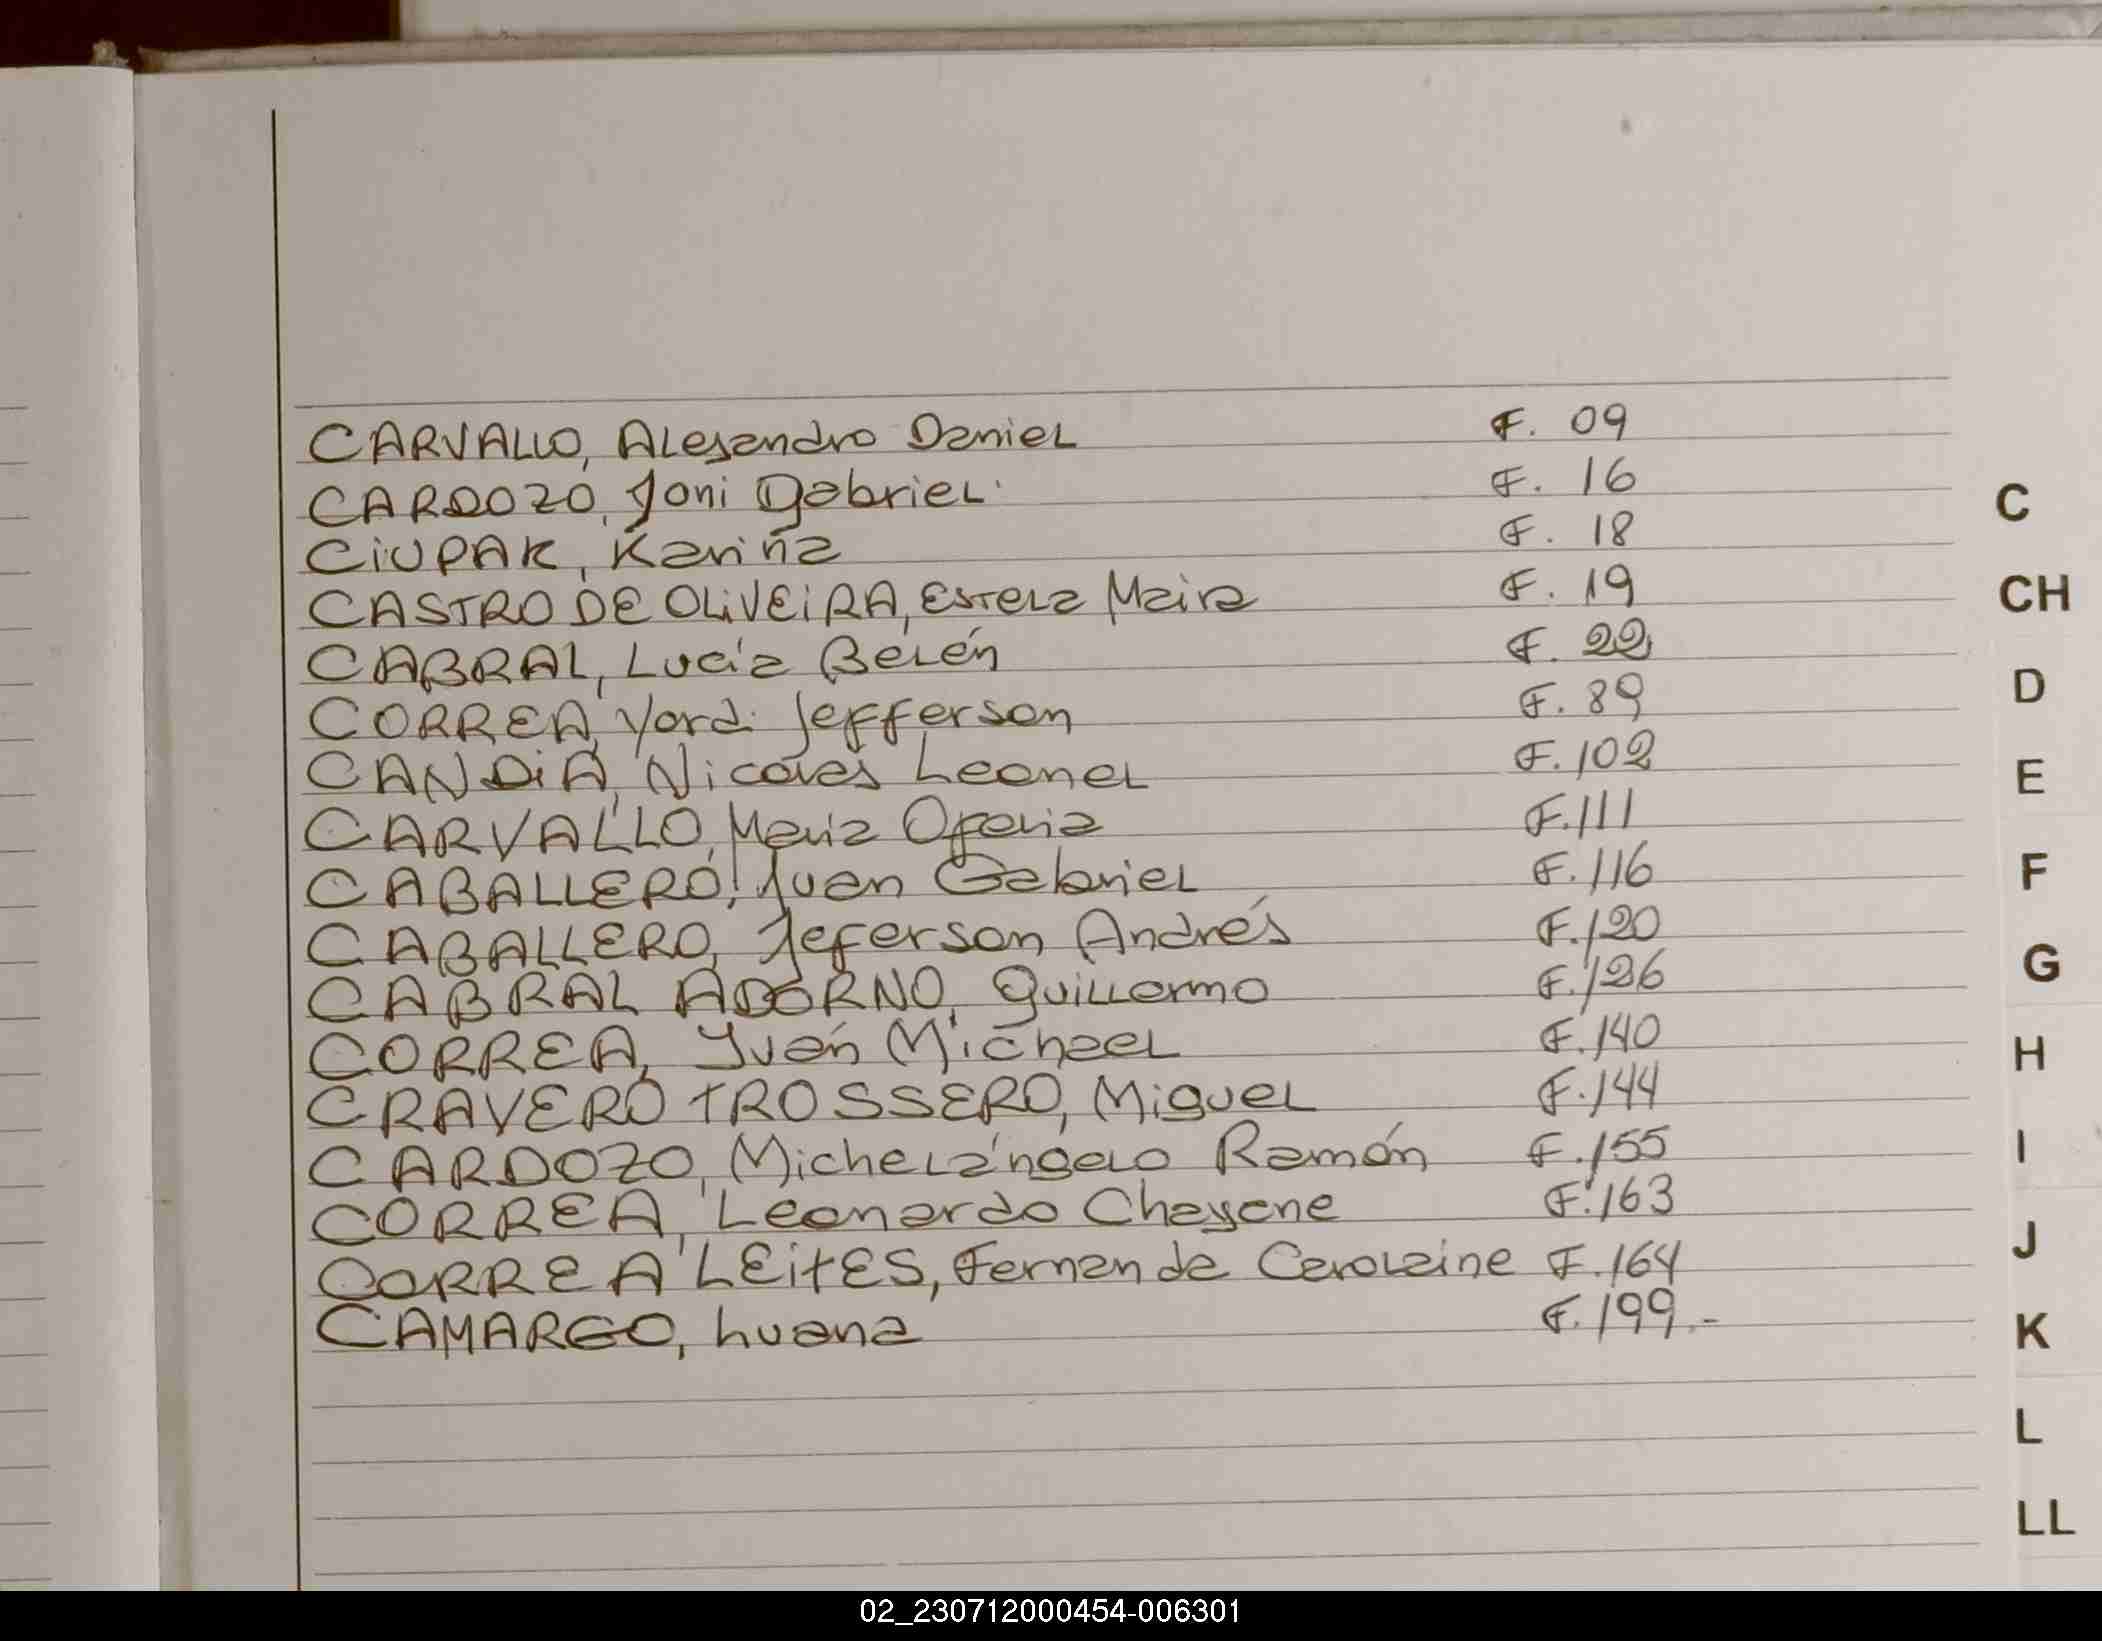 CARVALLO, Alejandro Daniel F. 09
CARDOZO, Joni Gabriel F. 16
CiUPAK, Karina F. 18
CASTRO DE OLiVEiRA, Estela Maira F. 19
CABRAL, Lucía Belén F. 22
CORREA, Yordi Jefferson F. 89
CANDiA, Nicolás Leonel F. 102
CARVALLO, Maria Ofelia F. 111
CABALLERO, Juan Gabriel F. 116
CABALLERO, Jeferson Andrés F. 120
CABRAL ADORNO, Guillermo F. 126
CORREA, Iván Michael F. 140
CRAVERO TROSSERO, Miguel F. 144
CARDOZO, Michelángelo Ramón F. 155
CORREA, Leonardo Chayene F. 163
CORREA LEitES, Fernanda Carolaine F. 164
CAMARGO, Luana F. 199.-
C
CH
D
E
F
G
H
I
J
K
L
LL
02_230712000454-006301